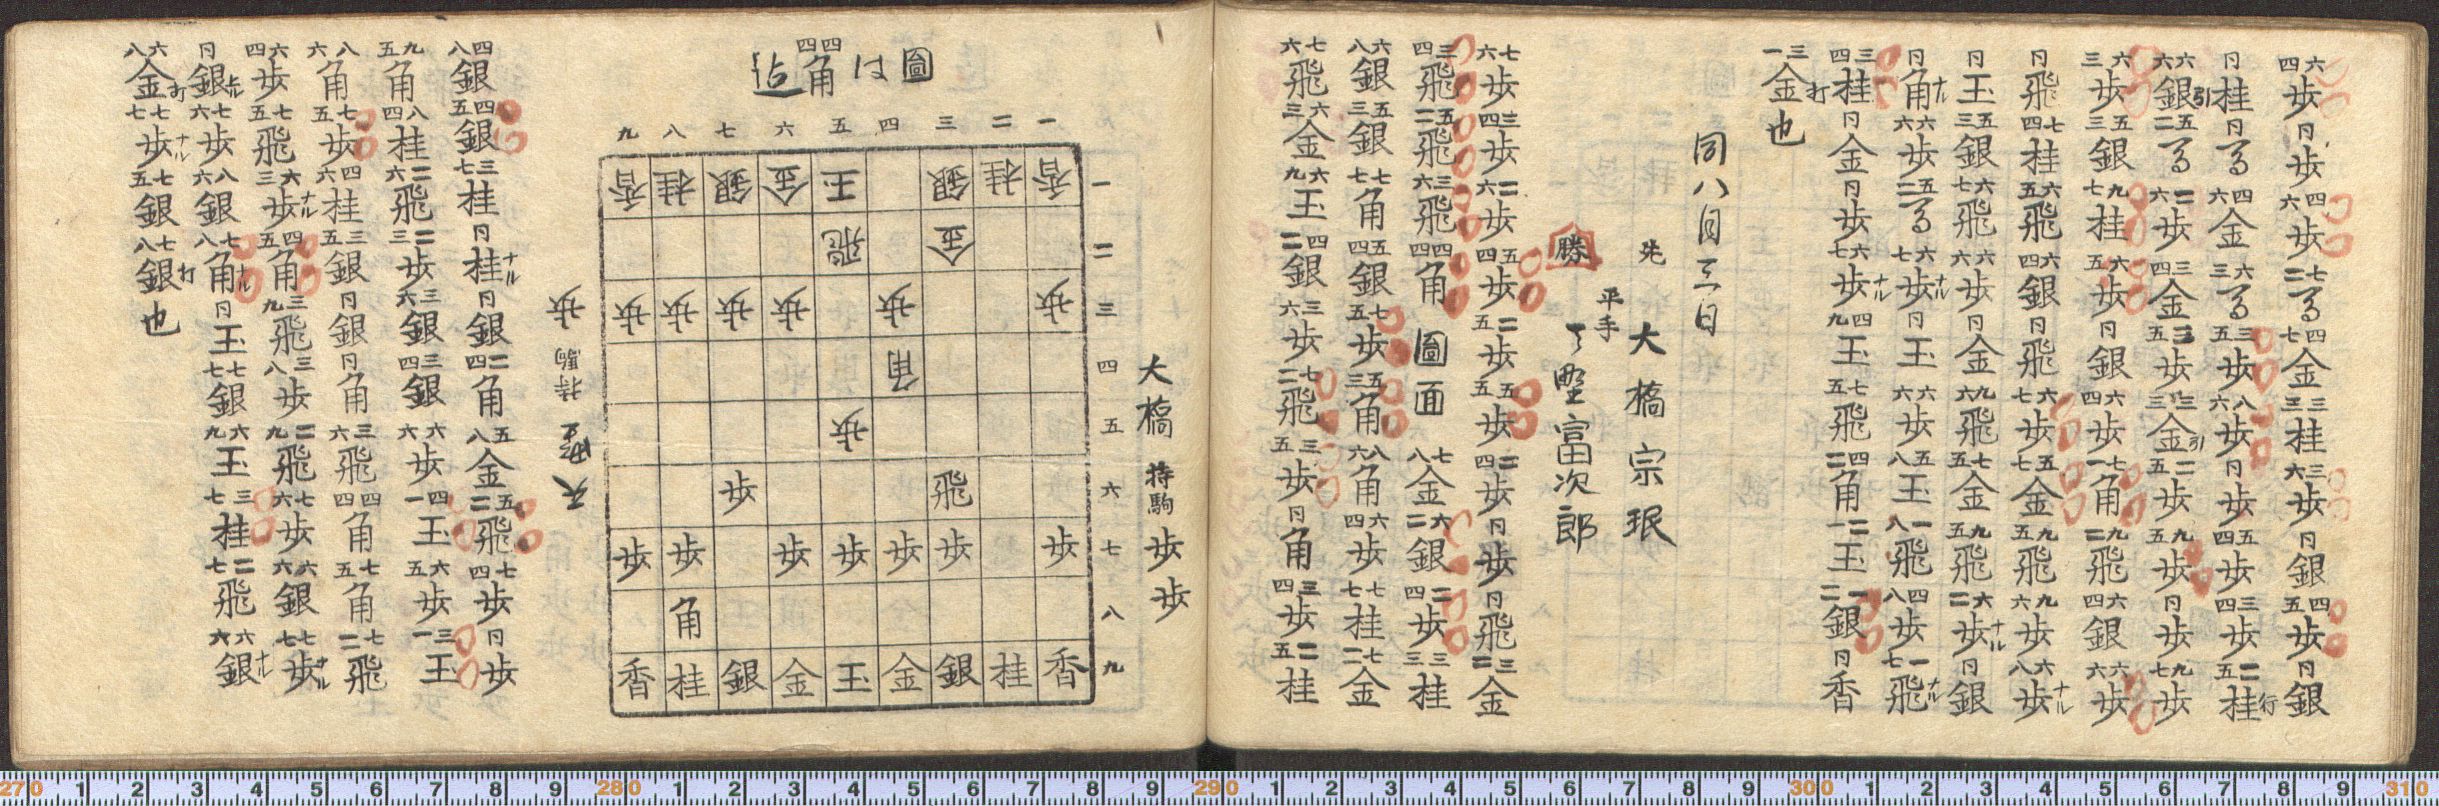 六四歩 同歩 四六歩 七二馬 四七金 三三桂 三六歩 同銀 四五歩 同銀
同桂 同馬 四六金 六三馬 三五歩 八六歩 同歩 五四歩 三四歩 二五桂行
六六銀引 五二馬 二六歩 三四金 三五歩 三三金引 二五歩 九五歩 同歩 九七歩
六三歩 五三銀 九七桂 六五歩 同銀 六四歩 七一角 九二飛 六四銀 六六歩
同飛 七四桂 六五飛 六四銀 同飛 六七歩 五七金 九五飛 九六歩 六八歩ナル
同玉 五三銀 六七飛 六六歩 同金 九六飛 七五金 九五飛 六二歩ナル 同銀
同角ナル 六六歩 五二馬 六七歩ナル 同玉 六六歩 五八玉 一八飛 四八歩 一七飛ナル
三四桂 同金 同歩 六七歩ナル 四九玉 七五飛 四二角 二一玉 一二銀 同香
三一金打也
同八月三日
先 大橋宗珉
平手
勝 天野富次郎
七六歩 三四歩 二六歩 五四歩 二五歩 五五歩 二四歩 同歩 同飛 三二金
三四飛 五二飛 三六飛 四四角 圖面 七八金 六二銀 二四歩 三三桂
六八銀 五三銀 七七角 五四銀 七五歩 五三角 八六角 六四歩 七七桂 七二金
七六飛 六三金 六九玉 四二銀 三六歩 七二飛 三五歩 同角 三四歩 二五桂
圖は四四角迠
大橋 持駒 歩歩
九 八 七 六 五 四 三 二 一
香 桂 銀 金 玉 銀 桂 香 一
飛 金 二
歩 歩 歩 歩 歩 歩 三
角 四
歩 五
歩 飛 六
歩 歩 歩 歩 歩 歩 歩 七
角 八
香 桂 銀 金 玉 金 銀 桂 香 九
天野 持駒 歩
四八銀 四五銀 三七桂 同桂ナル 同銀 二四角 五八金 五二飛 七四歩 同歩
九五角 八四桂 二六飛 二三歩 三六銀 三四銀 六六歩 四一玉 六五歩 三一玉
八六角 七五歩 四六桂 三五銀 同銀 同角 三六飛 四四角 七五角 七二飛
六四歩 七五飛 六三歩ナル 四五角 三九飛 三八歩 二九飛 七六歩 六六銀 七七歩ナル
同銀ナル 七六歩 八六銀 七八角ナル 同玉 七七銀 六九玉 三七桂 二七飛 六六銀ナル
六八金打 七七歩ナル 七五銀 七八銀打也